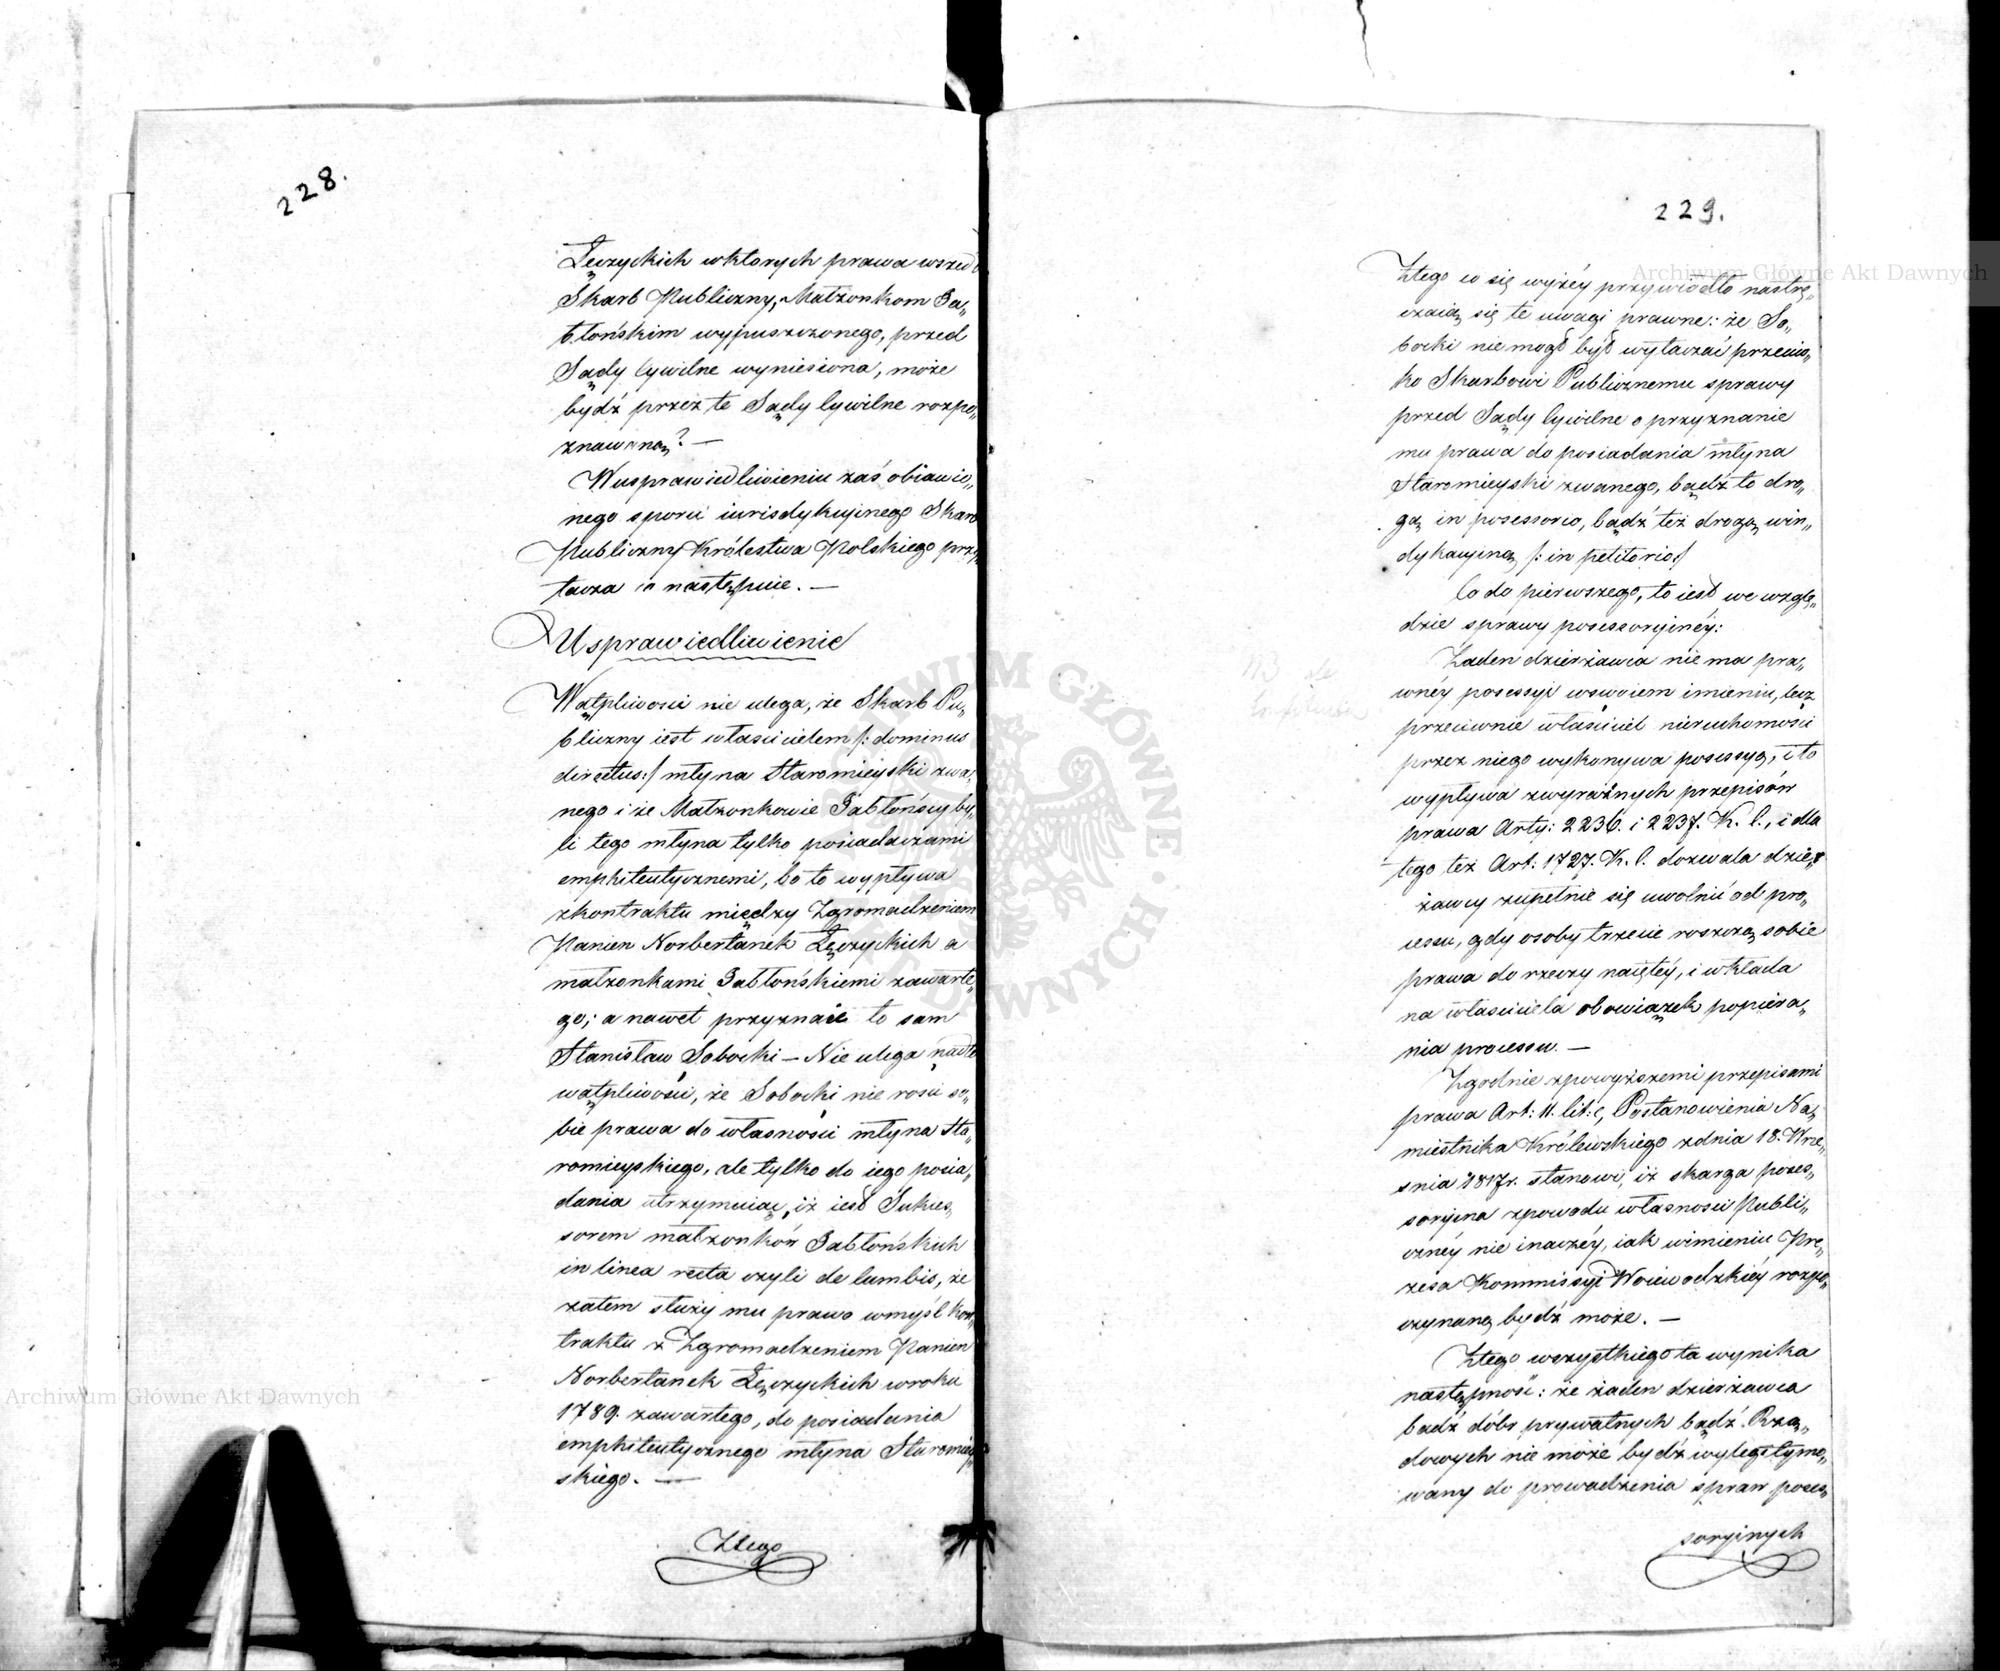 228.
Łęczyckich wktorych prawa wszedł
Skarb Publiczny, Małżonkom Ja„
błońskim wypuszczonego, przed
Sądy Cywilne wyniesiona, może
bydź przez te Sądy Cywilne rozpo„
znawaną? —
Wusprawiedliwieniu zaś obiawio„
nego sporu iurisdykcyinego Skarb
Publiczny Królestwa Polskiego przy„
tacza co następuie. —
Usprawiedliwienie
Wątpliwości nie ulega, że Skarb Pu„
bliczny iest właścicielem /: dominus
directus:/ młyna Staromieyski zwa„
nego i że Małżonkowie Jabłońscy by„
li tego młyna tylko posiadaczami
emphiteutycznemi, bo to wypływa
zkontraktu między Zgromadzeniem
Panien Norbertanek Łęczyckich a
małżonkami Jabłońskiemi zawarte„
go; a nawet przyznaie to sam
Stanisław Sobocki — Nie ulega nadto
wątpliwości, że Sobocki nie rości so„
bie prawa do własności młyna Sta„
romieyskiego, ale tylko do iego posia„
dania utrzymuiąc, iż iest Sukces„
sorem małżonków Jabłońskich
in linea recta czyli de lumbis, że
zatem służy mu prawo wmyśl kon„
traktu z Zgromadzeniem Panien
Norbertanek Łęczyckich wroku
1789. zawartego, do posiadania
emphiteutycznego młyna Staromiey„
skiego. —
Ztego
229.
Ztego co się wyżéy przywiodło nastrę„
czaią się te uwagi prawne: że So„
bocki nie mógł być wytaczać przeciw„
ko Skarbowi Publicznemu sprawy
przed Sądy Cywilne o przyznanie
mu prawa do posiadania młyna
Staromieyski zwanego, bądź to dro„
gą in posessorio, bądź też drogą win„
dykacyiną /: in petitorio:/
Co do pierwszego, to iest we wzglę„
dzie sprawy posessoryinéy:
Żaden dzierżawca nie ma pra„
wnéy posessyi wswoiem imieniu, lecz
przeciwnie właściciel nieruchomości
przez niego wykonywa posessyą, i to
wypływa zwyraźnych przepisów
prawa Arty: 2236. i 2237. K. C., i dla
tego też Art: 1727. K. C. dozwala dzier„
żawcy zupełnie się uwolnić od pro„
cessu, gdy osoby trzecie roszczą sobie
prawa do rzeczy naiętéy, i wkłada
na właściciela obowiązek popiera„
nia processu. —
Zgodnie zpowyższemi przepisami
prawa Art: 11. lit: c, Postanowienia Na„
miestnika Królewskiego zdnia 18. Wrze„
snia 1817r. stanowi, iż skarga poses„
soryina zpowodu własności Publi„
cznéy nie inaczéy, iak wimieniu Pre„
zesa Kommissyi Woiewodzkiéy rozpo„
czynaną bydź może. —
Ztego wszystkiego ta wynika
następność: że żaden dzierżawca
bądź dóbr prywatnych bądź Rzą„
dowych nie może bydź wylegitymo„
wany do prowadzenia spraw poses„
soryinych
NB de
Archiwum Główne Akt Dawnych
Archiwum Główne Akt Dawnych
ARCHIWUM GŁÓWNE AKT DAWNYCH